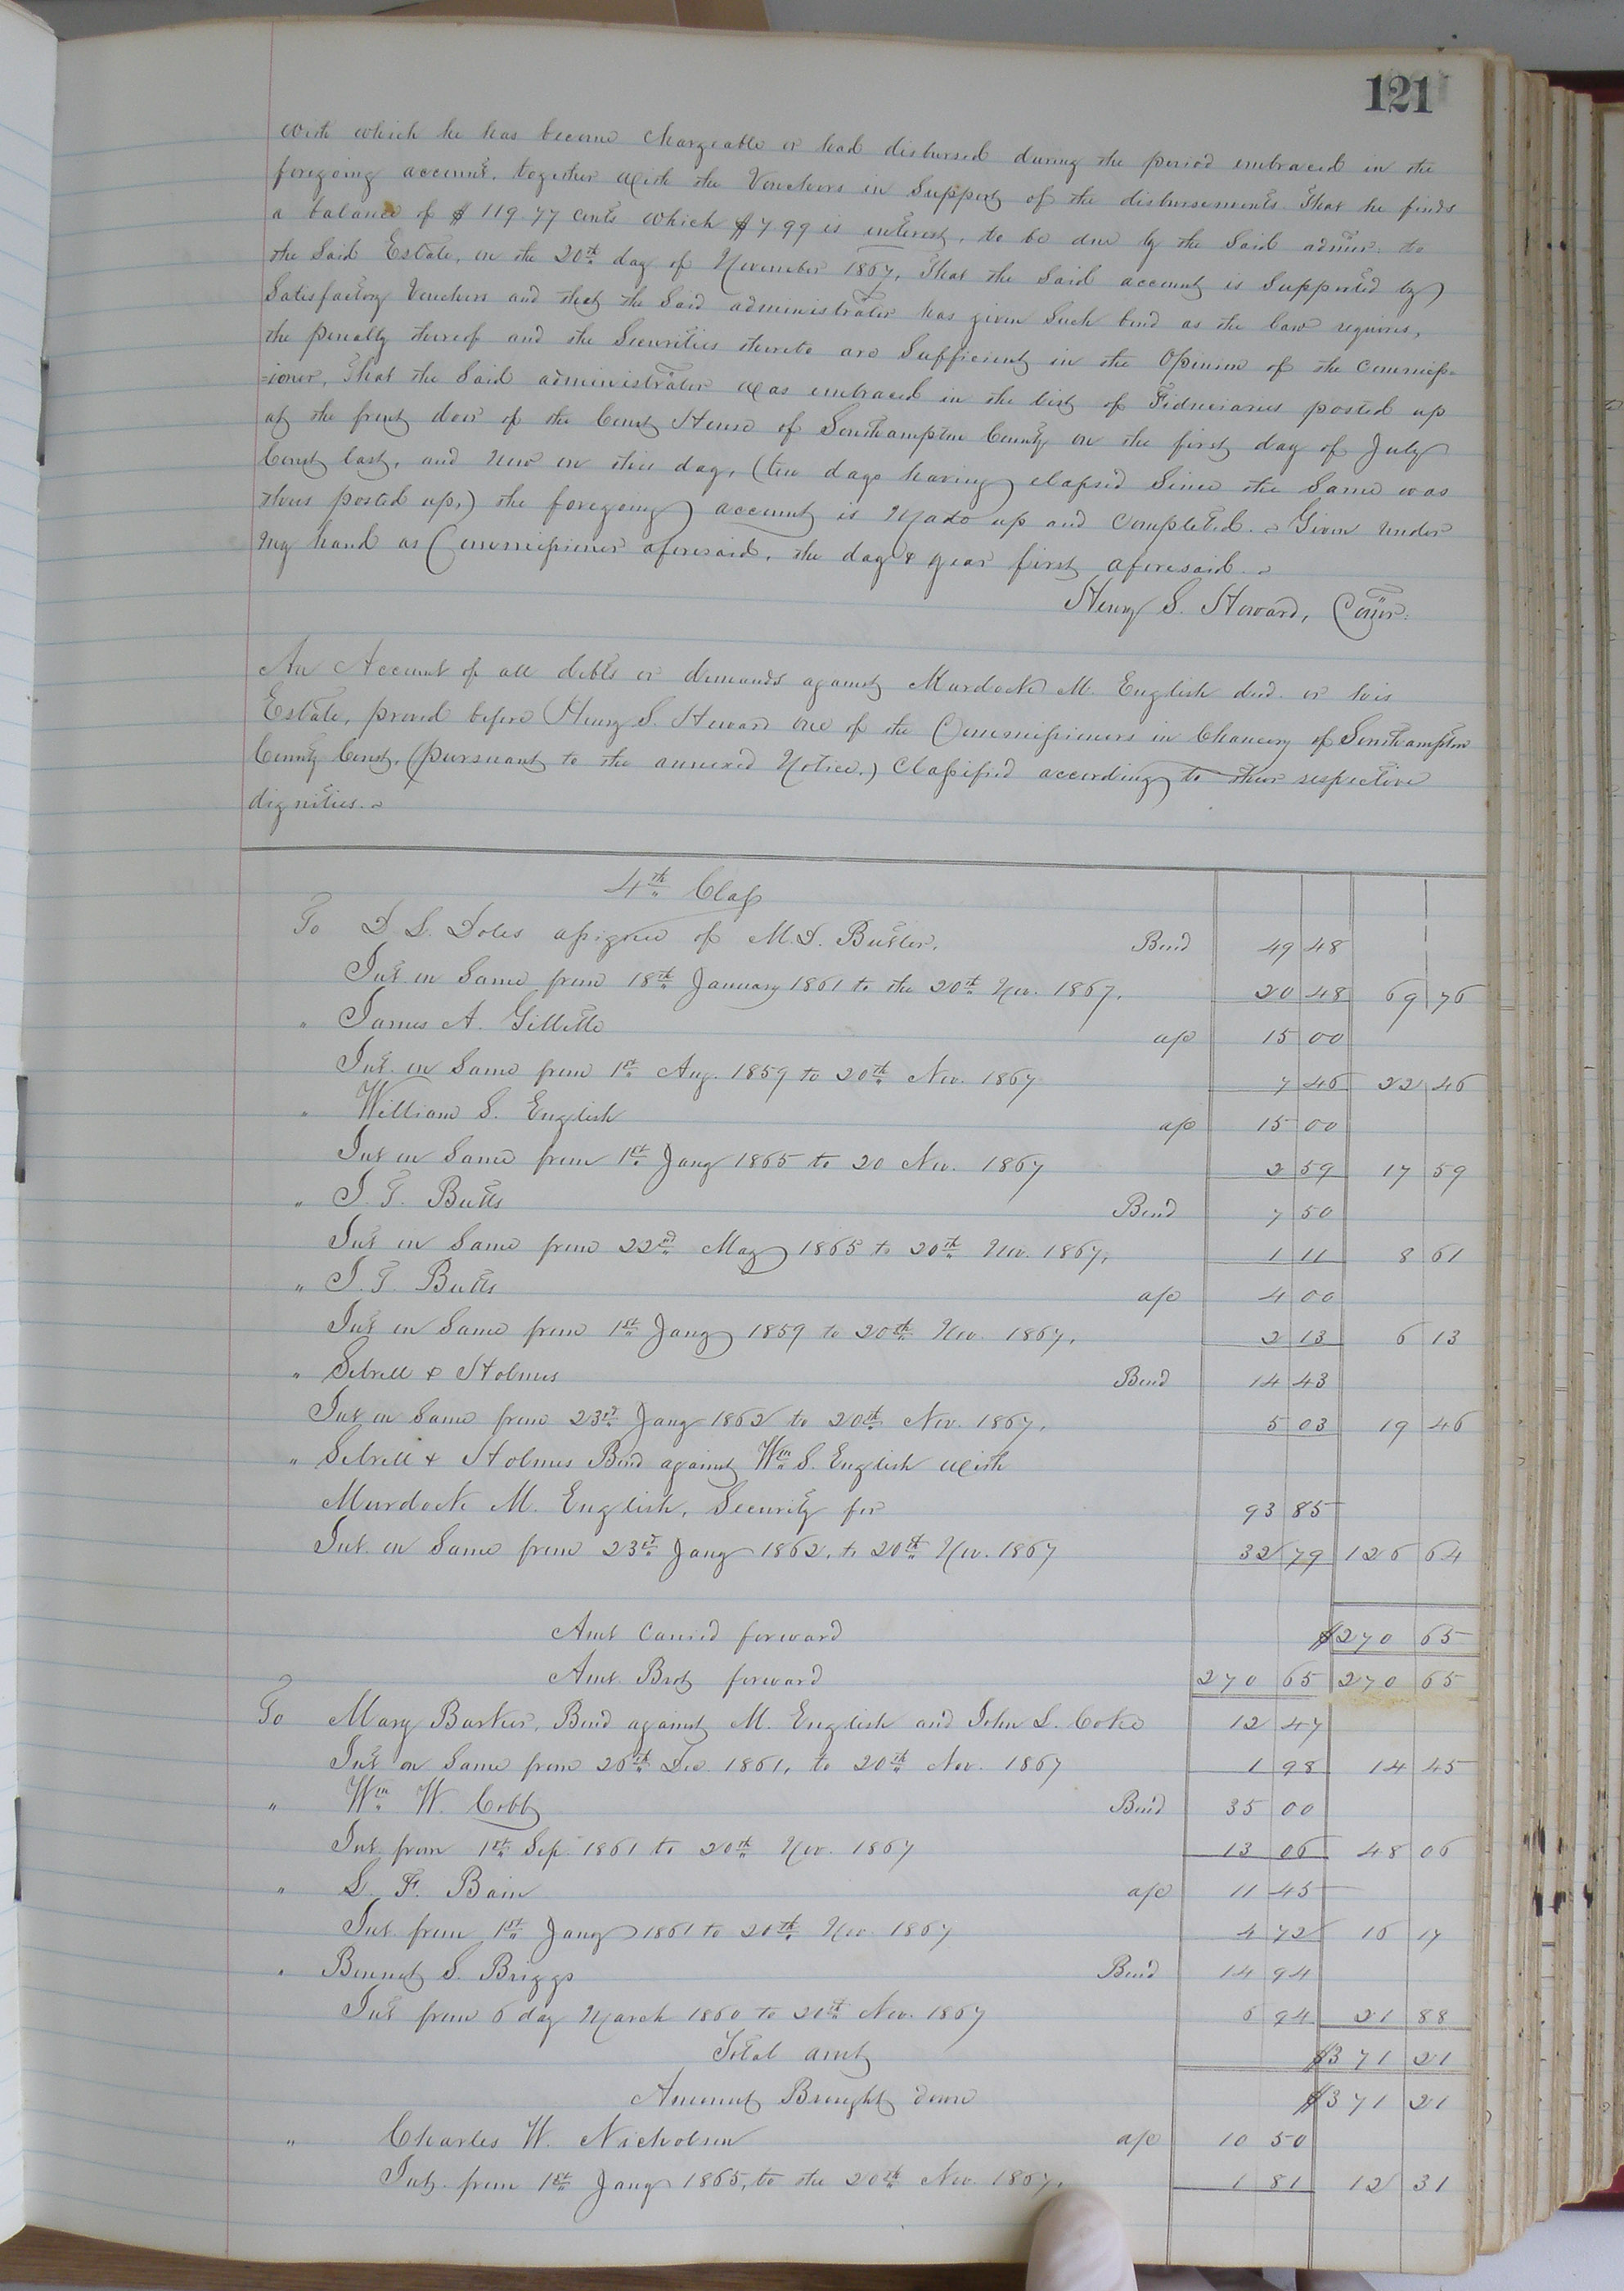 121
with which he has become chargeable or had disbursed during the period embraced in the
foregoing account, together with the Vouchers in Support of the disbursements That he finds
a balance of $119.77 cents which $7.99 is interest, to be due by the Said admr. to
the Said Estate, on the 20th day of November 1867, That the Said account is Supported by
Satisfactory Vouchers and that the Said administrator has given Such bond as the law requires,
the penalty thereof and the Securities thereto are Sufficient in the Opinion of the commiss=
=ioner, That the Said administrator was embraced in the list of Fiduciaries posted up
at the front door of the Court House of Southampton County on the first day of July
Court last, and Now on this day, (ten days having elapsed Since the Same was
thus posted up,) the foregoing account is Made up and Completed. Given under
My hand as Commissioner aforesaid, the day & year first aforesaid.
Henry S. Howard, Comr.
An Account of all debts or demands against Murdock M. English decd. or his
Estate, proved before Henry S. Howard one of the Commissioners in Chancery of Southampton
County Court, (pursuant to the annexed Notice,) Classified according to their respective
dignities.
4th Class
To D. L. Doles assignee of M. D. Butler. Bond 49 48
Int on Same from 18th January 1861 to the 20th Nov. 1867. 20 48 69 76
" James A. Gillette a/c 15 00
Int. on Same from 1st Aug. 1859 to 20th Nov. 1867 7 46 22 46
" William S. English a/c 15 00
Int on Same from 1st Jany 1865 to 20 Nov. 1867 2 59 17 59
" J. T. Butts Bond 7 50
Int on Same from 22nd May 1865 to 20th Nov. 1867. 1 11 8 61
" J. T. Butts a/c 4 00
Int on Same from 1st Jany 1859 to 20th Nov. 1867. 2 13 6 13
" Sebrell & Holmes Bond 14 43
Int on Same from 23rd Jany 1862 to 20th Nov. 1867. 5 03 19 46
" Sebrell & Holmes Bond against Wm S. English with
Murdock M. English, Security for 93 85
Int. on Same from 23rd Jany 1862, to 20th Nov. 1867 32 79 126 64
Amt Carried forward $270 65
Amt. Brot forward 270 65 270 65
To Mary Barker, Bond against M. English and John L. Coke 12 47
Int on Same from 26th Dec. 1861, to 20th Nov. 1867 1 98 14 45
" Wm W. Cobb Bond 35 00
Int. from 1st Sep. 1861 to 20th Nov. 1867 13 06 48 06
" L. F. Bain a/c 11 45
Int. from 1st Jany 1861 to 20th Nov. 1867 4 72 16 17
" Bennet S. Briggs Bond 14 94
Int from 6 day March 1860 to 20th Nov. 1867 6 94 21 88
Total amt $371 21
Amount Brought down $371 21
" Charles W. Nicholson a/c 10 50
Int. from 1st Jany 1865, to the 20th Nov. 1867. 1 81 12 31